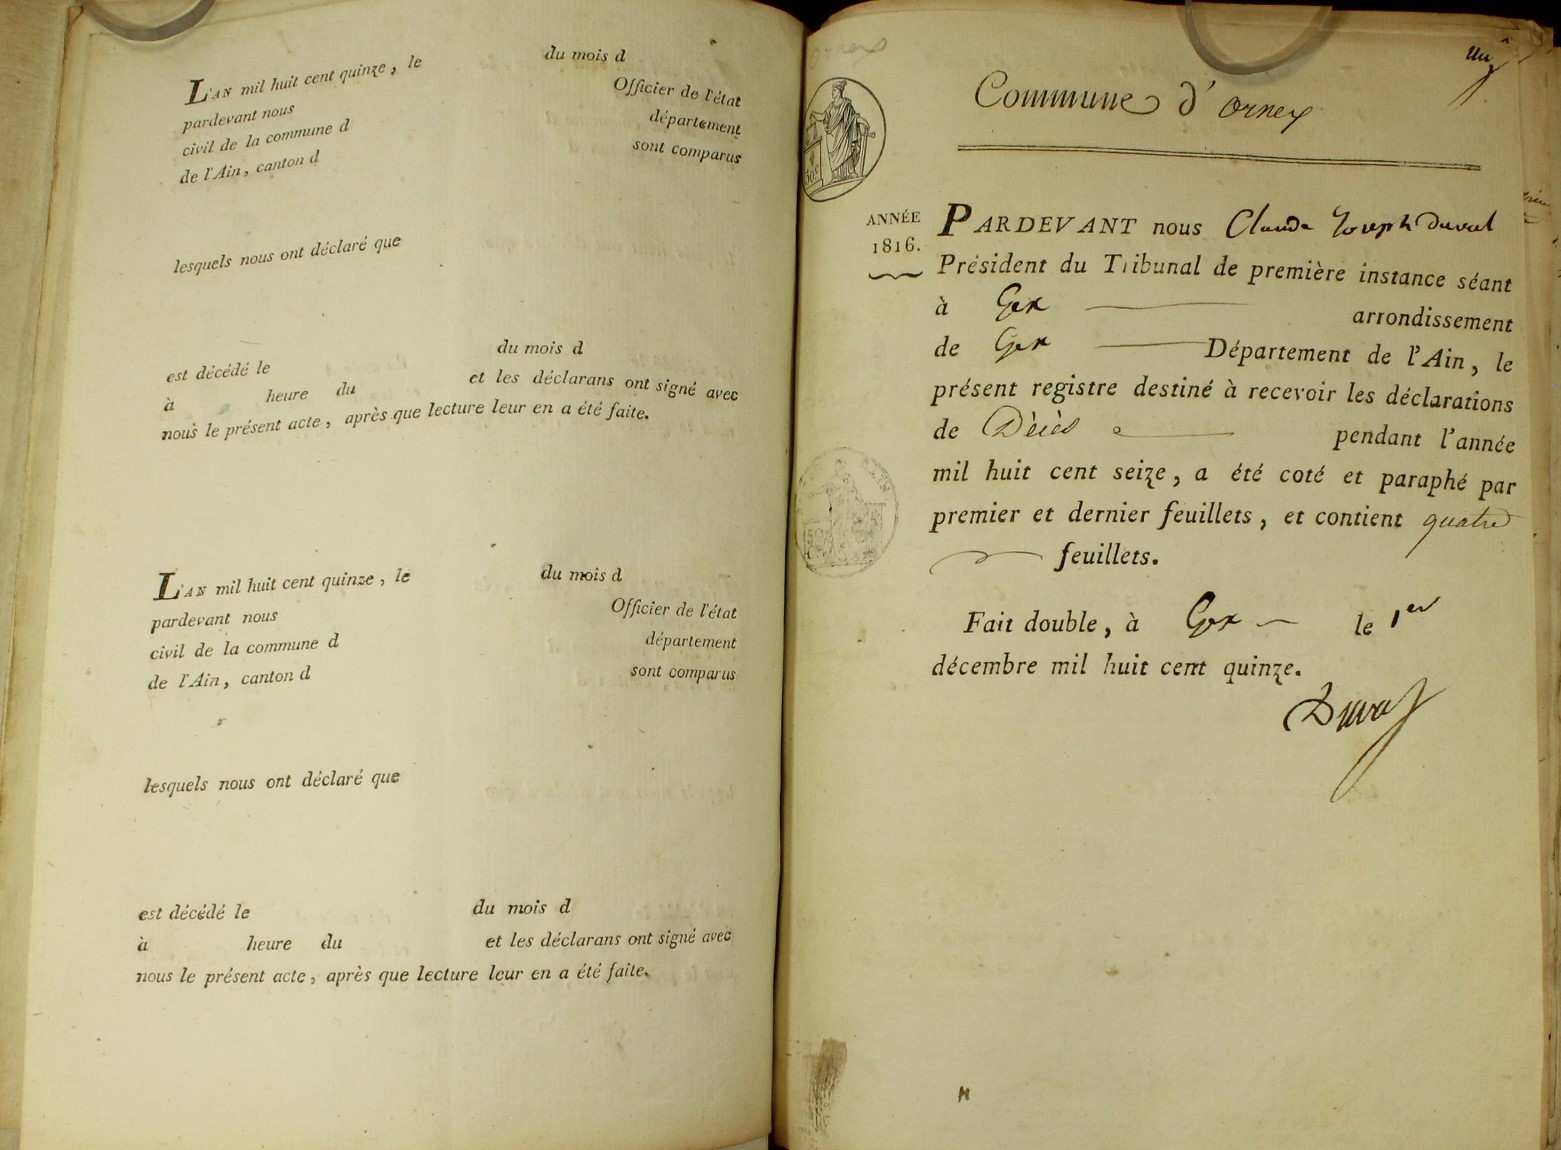 L'AN mil huit cent quinze, le du mois d
pardevant nous Officier de l'état
civil de la commune d département
de l'Ain, canton d sont comparus
lesquels nous ont déclaré que
est décédé le du mois d
à heure du et les déclarans ont signé avec
nous le présent acte, après que lecture leur en a été faite.
L'AN mil huit cent quinze, le du mois d
pardevant nous Officier de l'état
civil de la commune d département
de l'Ain, canton d sont comparus
lesquels nous ont déclaré que
est décédé le du mois d
à heure du et les déclarans ont signé avec
nous le présent acte, après que lecture leur en a été faite.
un
Commune d'ornex
ANNÉE
1816.
PARDEVANT nous Claude Joseph Duval
Président du Tribunal de première instance séant
à Gex arrondissement
de Gex Département de l'Ain, le
présent registre destiné à recevoir les déclarations
de Décès pendant l'année
mil huit cent seize, a été coté et paraphé par
premier et dernier feuillets, et contient quatre
feuillets.
Fait double, à Gex le 1er
décembre mil huit cent quinze.
Duval